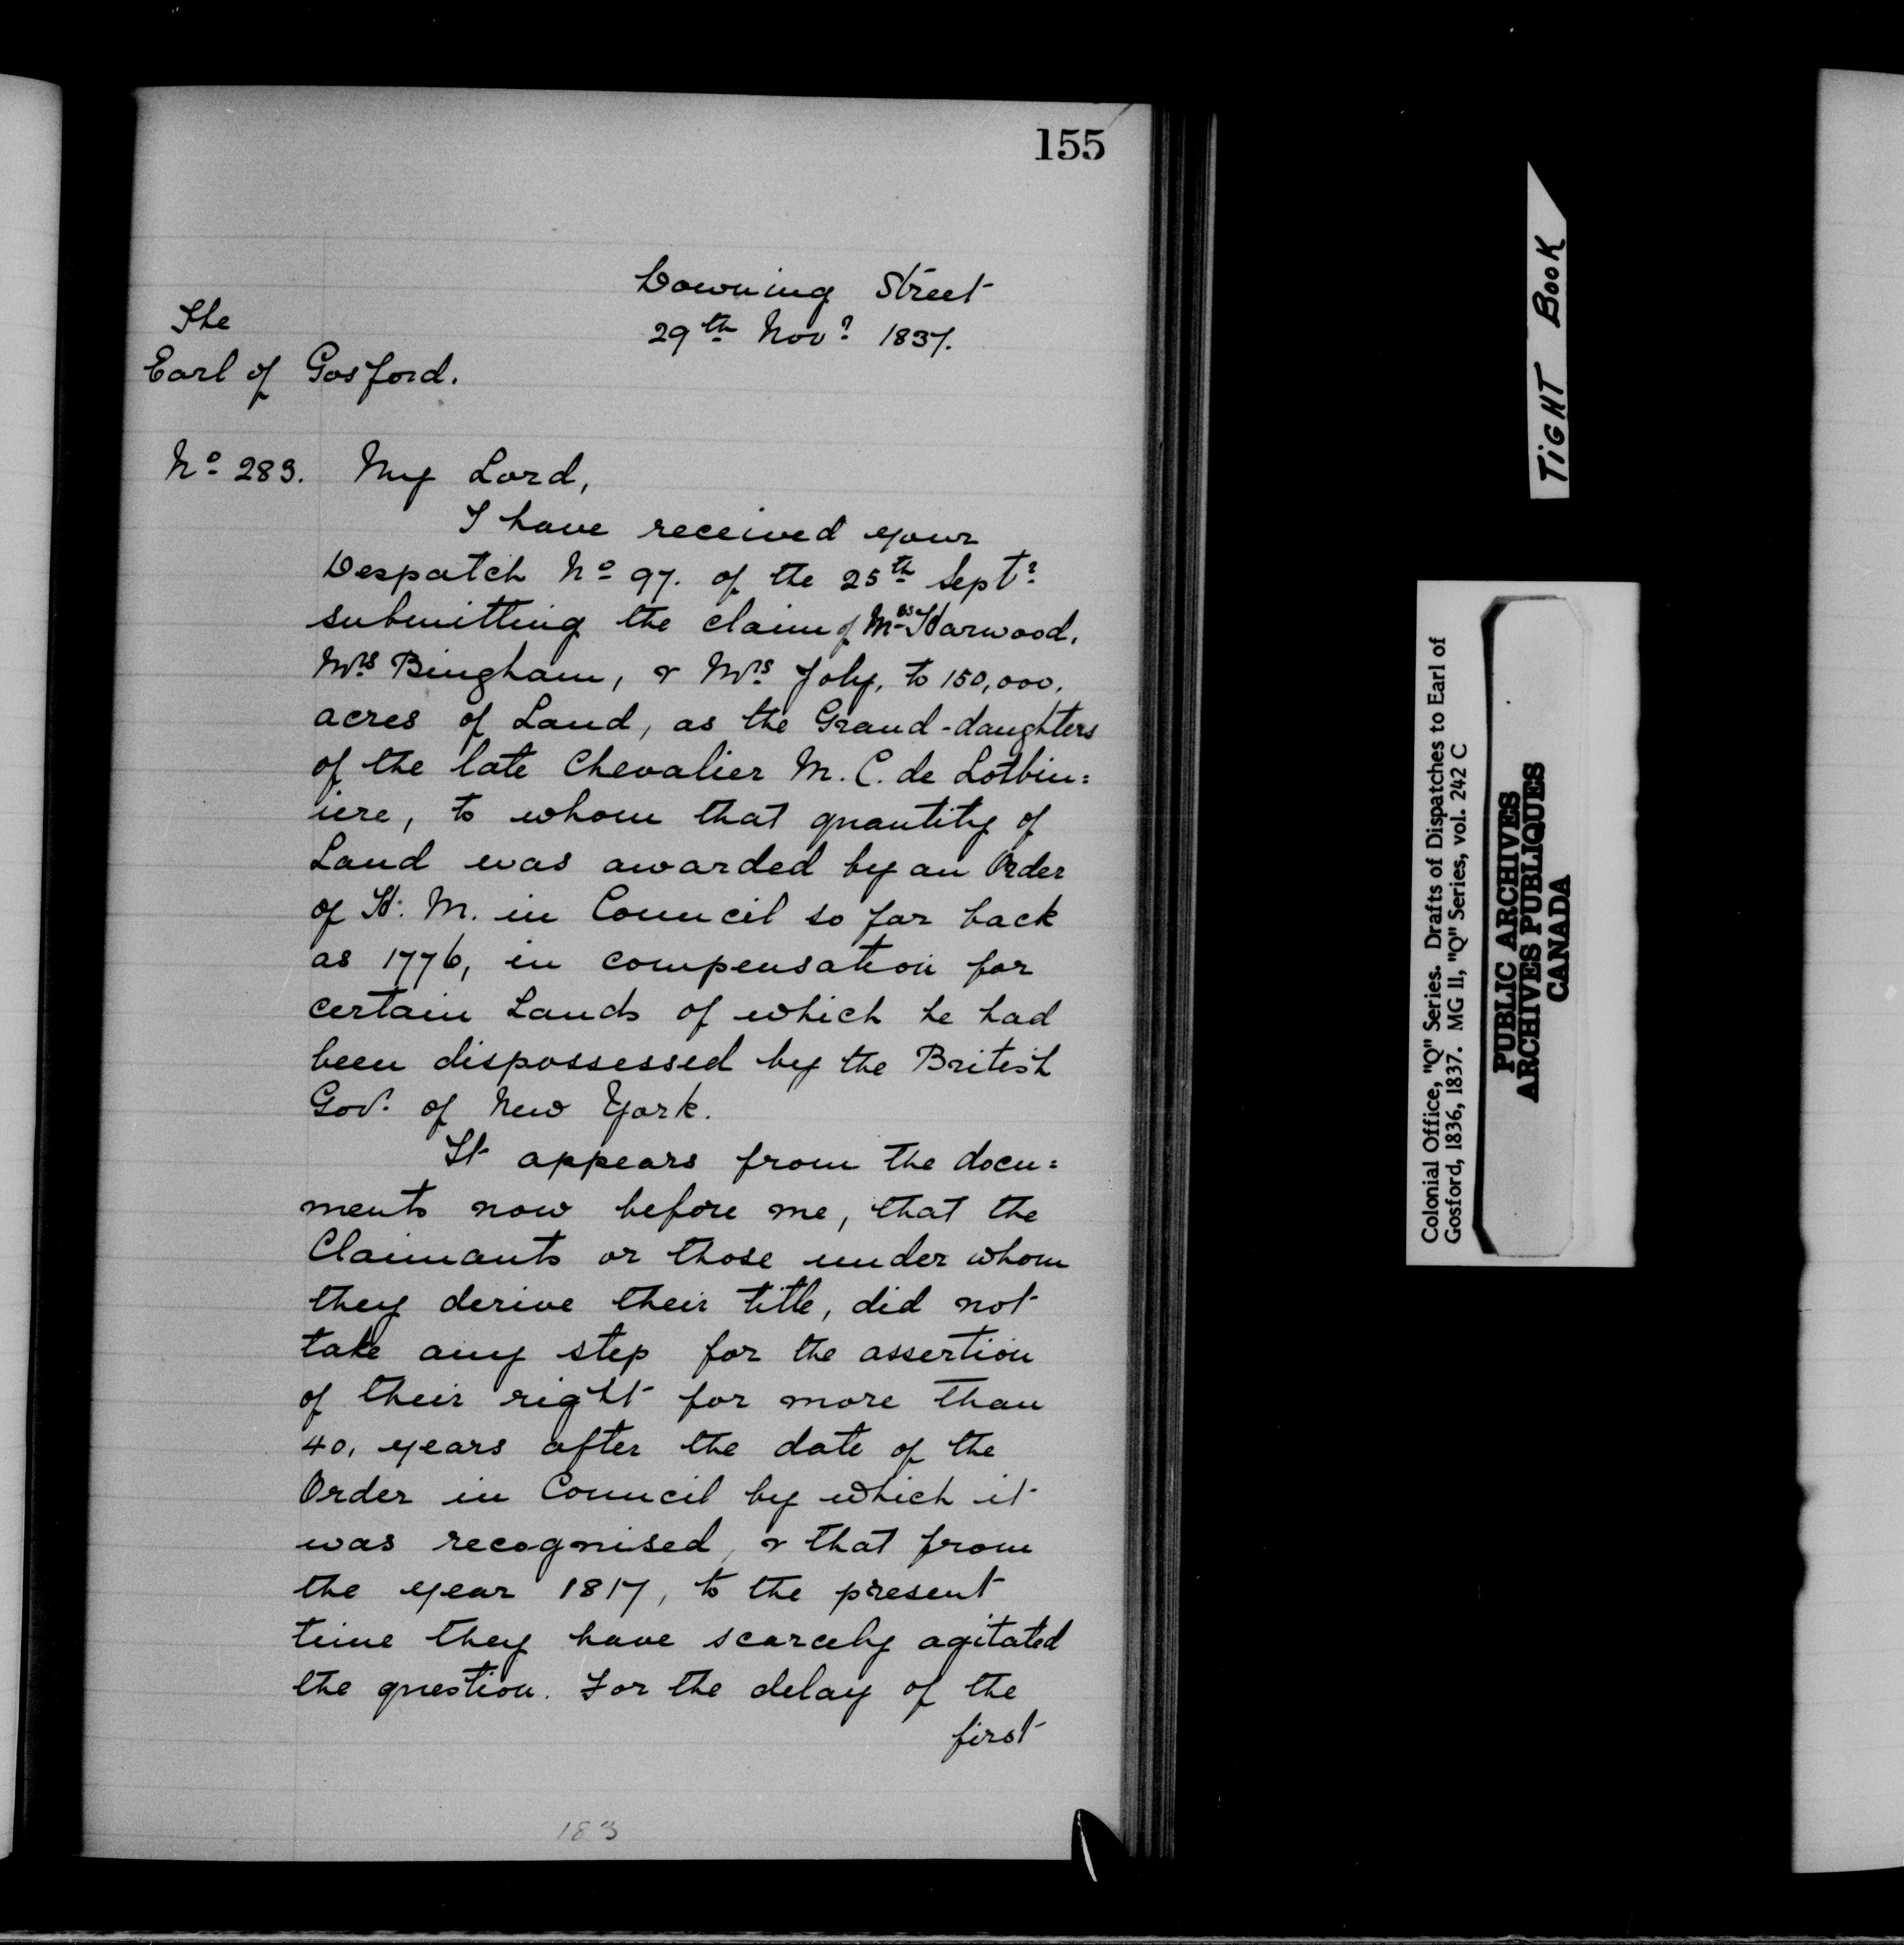 155
Downing Street
29th Novr 1837.
The
Earl of Gosford.
No 283. My Lord,
I have received your
Despatch No 97. of the 25th Septr
submitting the claim of Mrs Harwood,
Mrs Bingham, & Mrs Joly, to 150,000.
acres of Land, as the Grand-daughters
of the late Chevalier M. C. de Lotbin=
iere, to whom that quantity of
Land was awarded by an Order
of H. M. in Council so far back
as 1776, in compensation for
certain Lands of which he had
been dispossessed by the British
Govt. of New York.
It appears from the docu=
ments now before me, that the
Claimants or those under whom
they derive their title, did not
take any step for the assertion
of their right for more than
40, years after the date of the
Order in Council by which it
was recognised, & that from
the year 1817, to the present
time they have scarcely agitated
the question. For the delay of the
first
183
TIGHT BOOK
Colonial Office, "Q" Series. Drafts of Dispatches to Earl of
Gosford, 1836, 1837. MG II, "Q" Series, vol. 242 C
PUBLIC ARCHIVES
ARCHIVES PUBLIQUES
CANADA